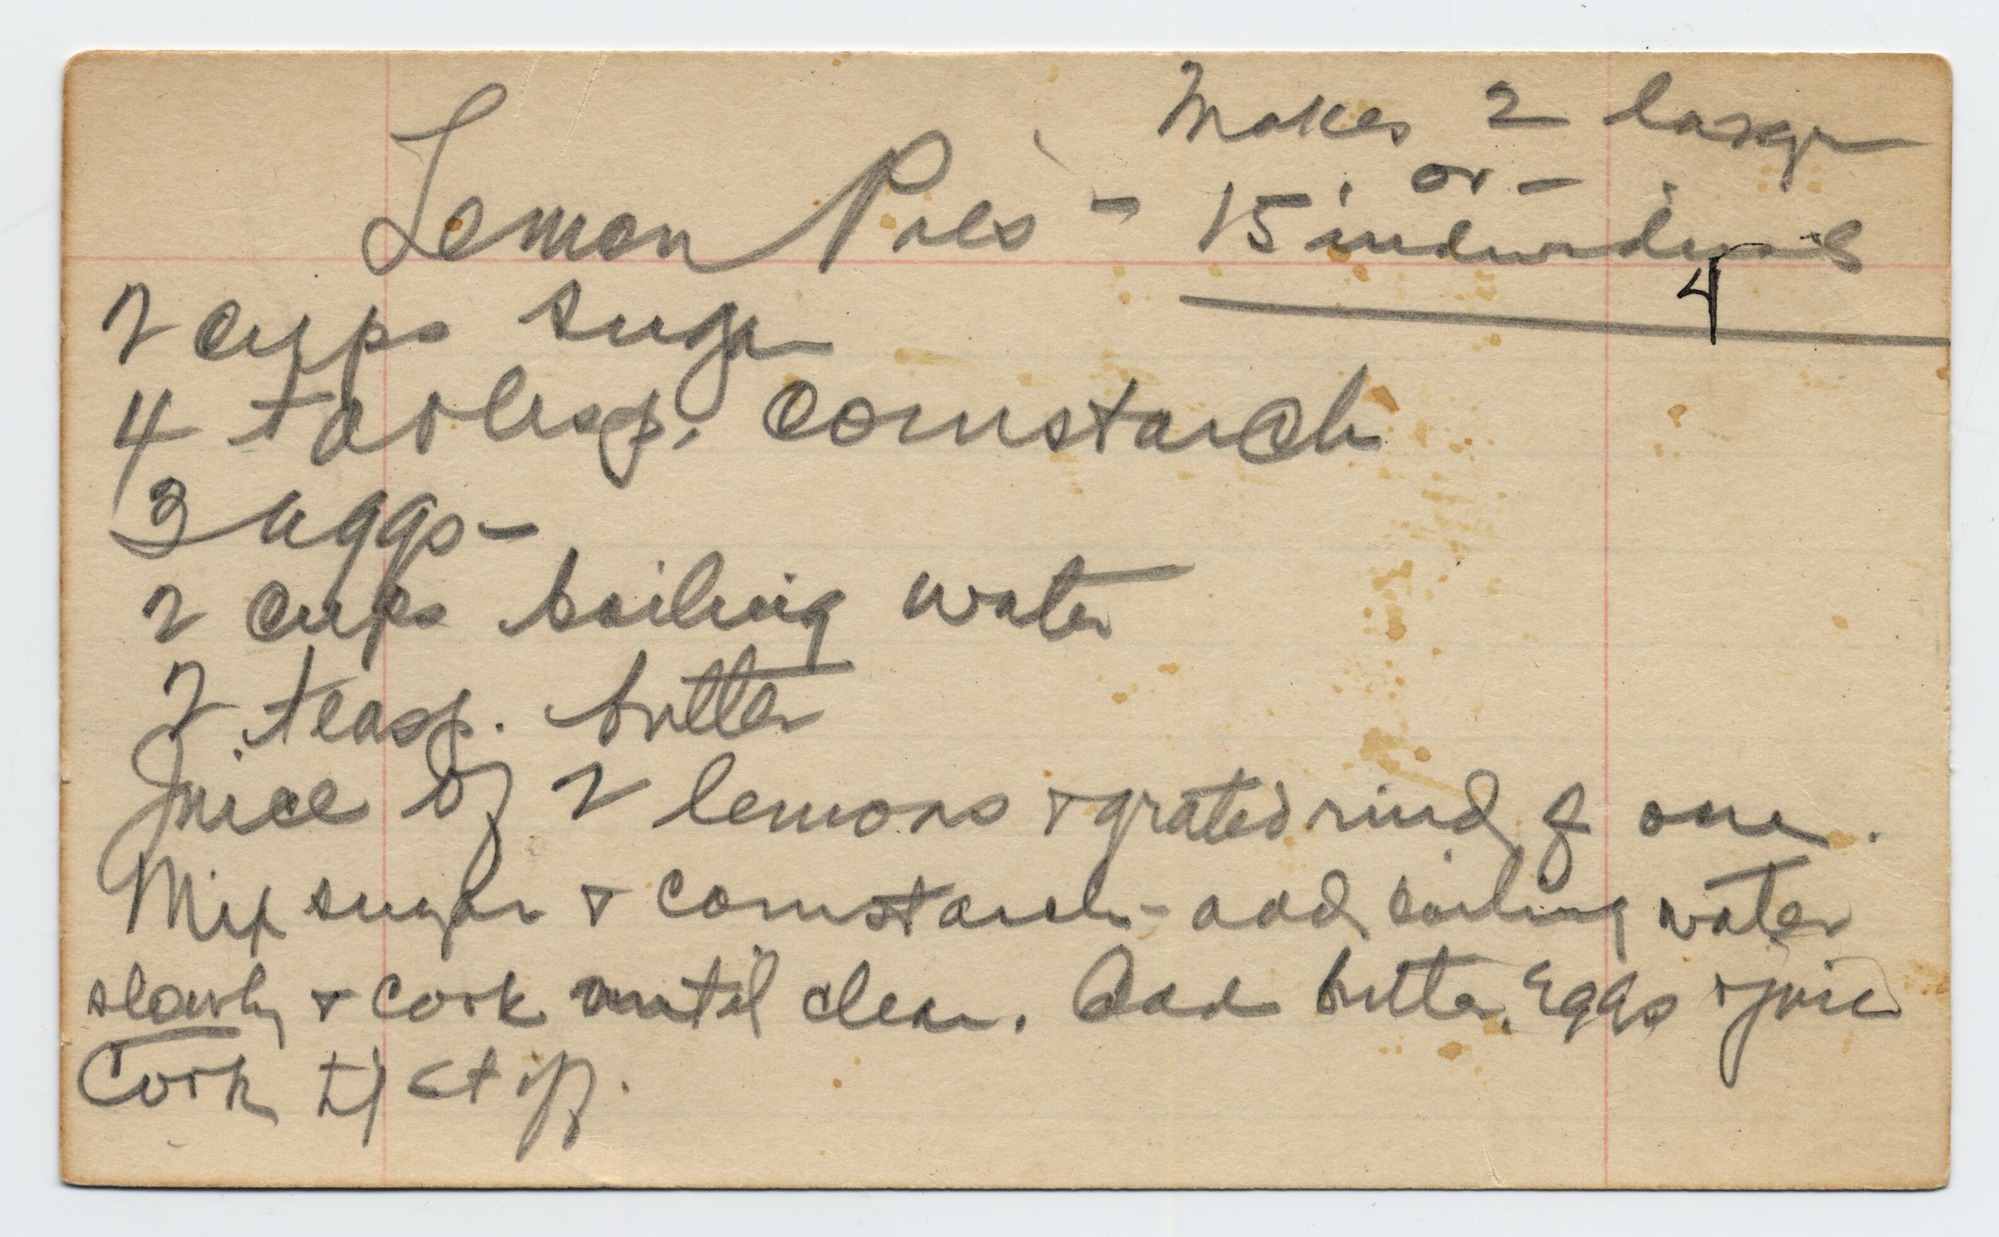 Lemon Pies - Makes 2 large
or -
15 individuals
4
2 cups sugar
4 tablesp. cornstarch
3 eggs -
2 cups boiling water
2 teasp. butter
Juice of 2 lemons & grated rind of one.
Mix sugar & cornstarch - add boiling water
slowly & cook until clear. Add butter, Eggs & juice
Cook til stiff.